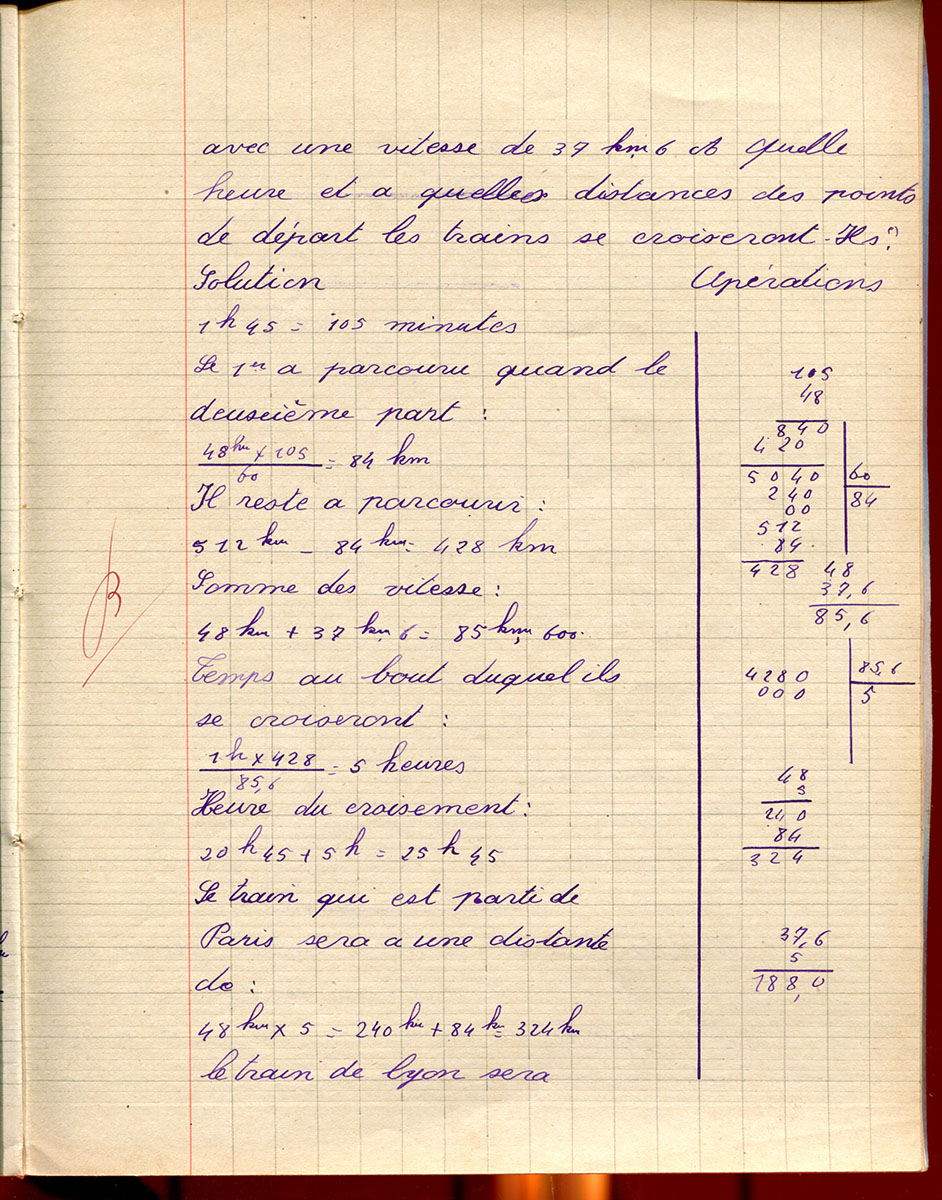 avec une vitesse de 37 km,6 A quelle
heure et a quelles distances des points
de départ les trains se croiseront-Ils?
Solution Opérations
1h 45 = 105 minutes
Le 1er a parcouru quand le
deuxième part :
48km x 105 / 60 = 84 km
Il reste a parcourir :
512 km - 84 km = 428 km
Somme des vitesse :
48 km + 37 km,6 = 85 km,600.
Temps au bout duquel ils
se croiseront :
1h x 428 / 85,6 = 5 heures
Heure du croisement :
20h45 + 5h = 25h45
Le train qui est parti de
Paris sera a une distante
de :
48 km x 5 = 240 km + 84 k = 324 km
le train de lyon sera
105
48
840
420
5040 60
240 84
00
512
84
428
48
37,6
85,6
4280 85,6
000 5
48
5
240
84
324
37,6
5
188,0
B